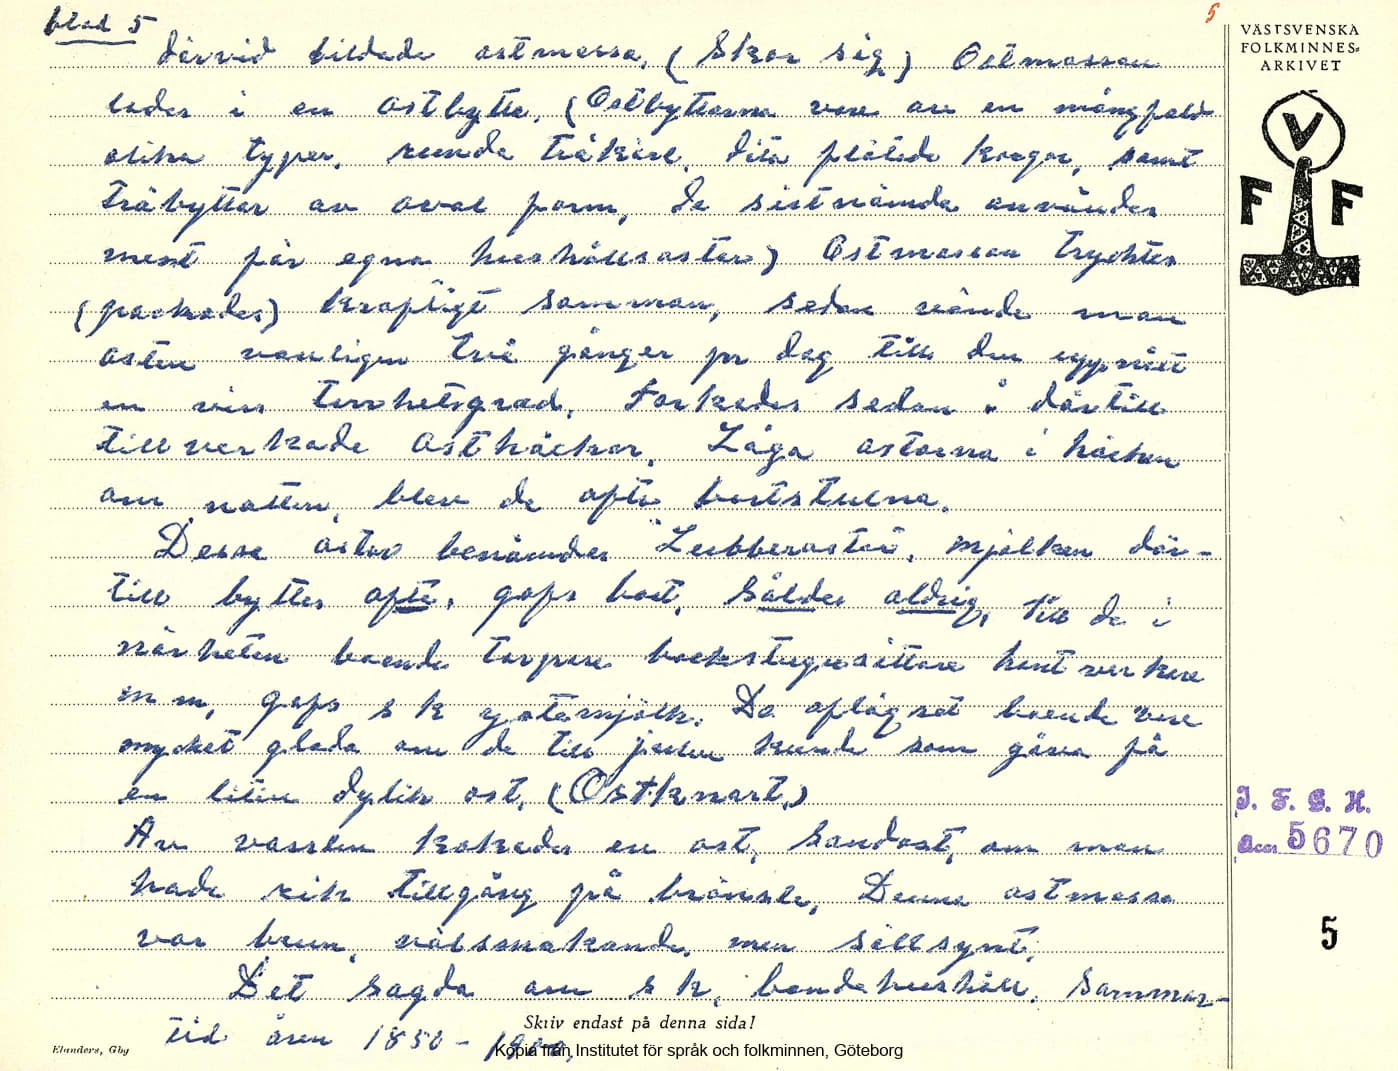 blad 5
5
därvid bildade ostmassa, (skar sig) Ostmassan
lades i en ostbytta. (Ostbyttorna vore av en mångfald
olika typer, runda träkärl, dito flätade korgar, samt
träbyttor av oval form, de sistnämda användes
mest för egna hushållsostar) Ostmassan trycktes
(packades) kraftigt samman, sedan vände man
osten vanligen två gånger pr dag till den uppnått
en viss torrhetsgrad. Torkades sedan i därtill
tillverkade osthäckar. Låga ostarna i häcken
om natten, blev de ofta bortstulna.
Dessa ostar benämdes "Lubberostar", mjölken där-
till byttes ofta, gafs bort, såldes aldrig, till de i
närheten boende torpare backstugusittare hantverkare
m m, gafs s k ystemjölk. De aflägset boende vore
mycket glada om de till julen kunde som gåva få
en liten dylik ost, (Ostknart.)
Av vasslen kokades en ost, Sandost, om man
hade rik tillgång på bränsle, Denna ostmassa
var brun, välsmakande, men sällsynt.
Det sagda om s k, bondehushåll. Sammar-
tid åren 1850 –
VÄSTSVENSKA
FOLKMINNES-
ARKIVET
V
F F
I. F. G. H.
Acc. 5670
5
Skriv endast på denna sida!
Elanders, Gbg
Kopia från Institutet för språk och folkminnen, Göteborg